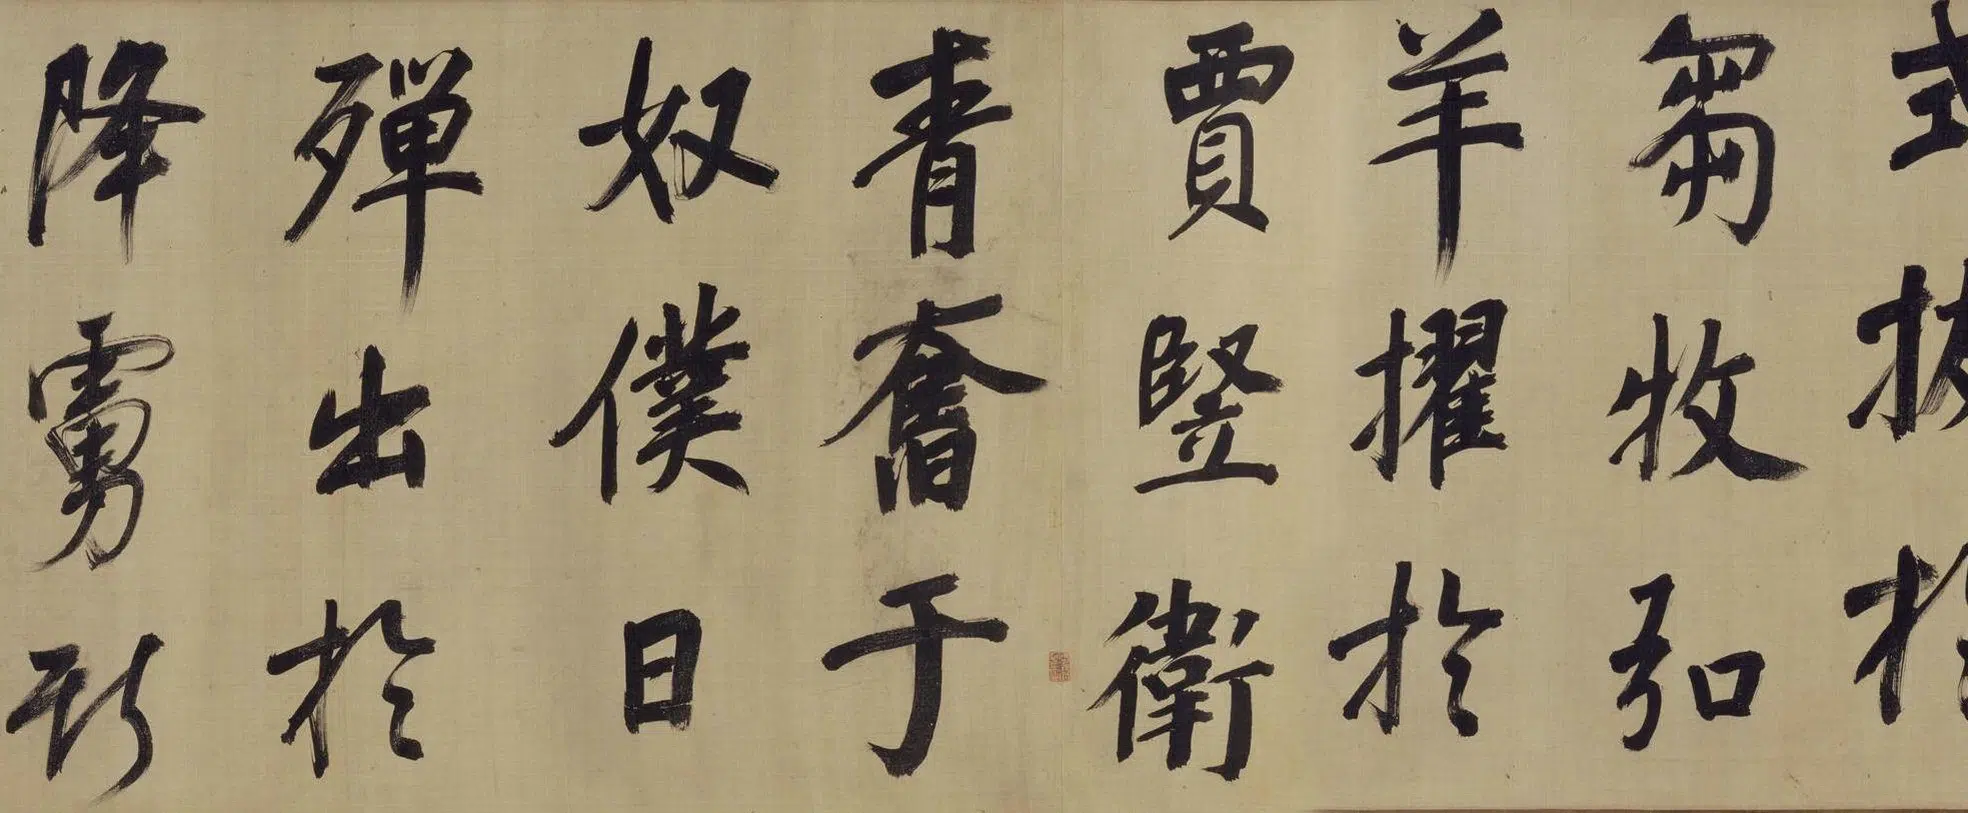 式拔於
芻牧弘
羊擢於
賈豎衛
青奮于
奴僕日
殫出於
降虜斯